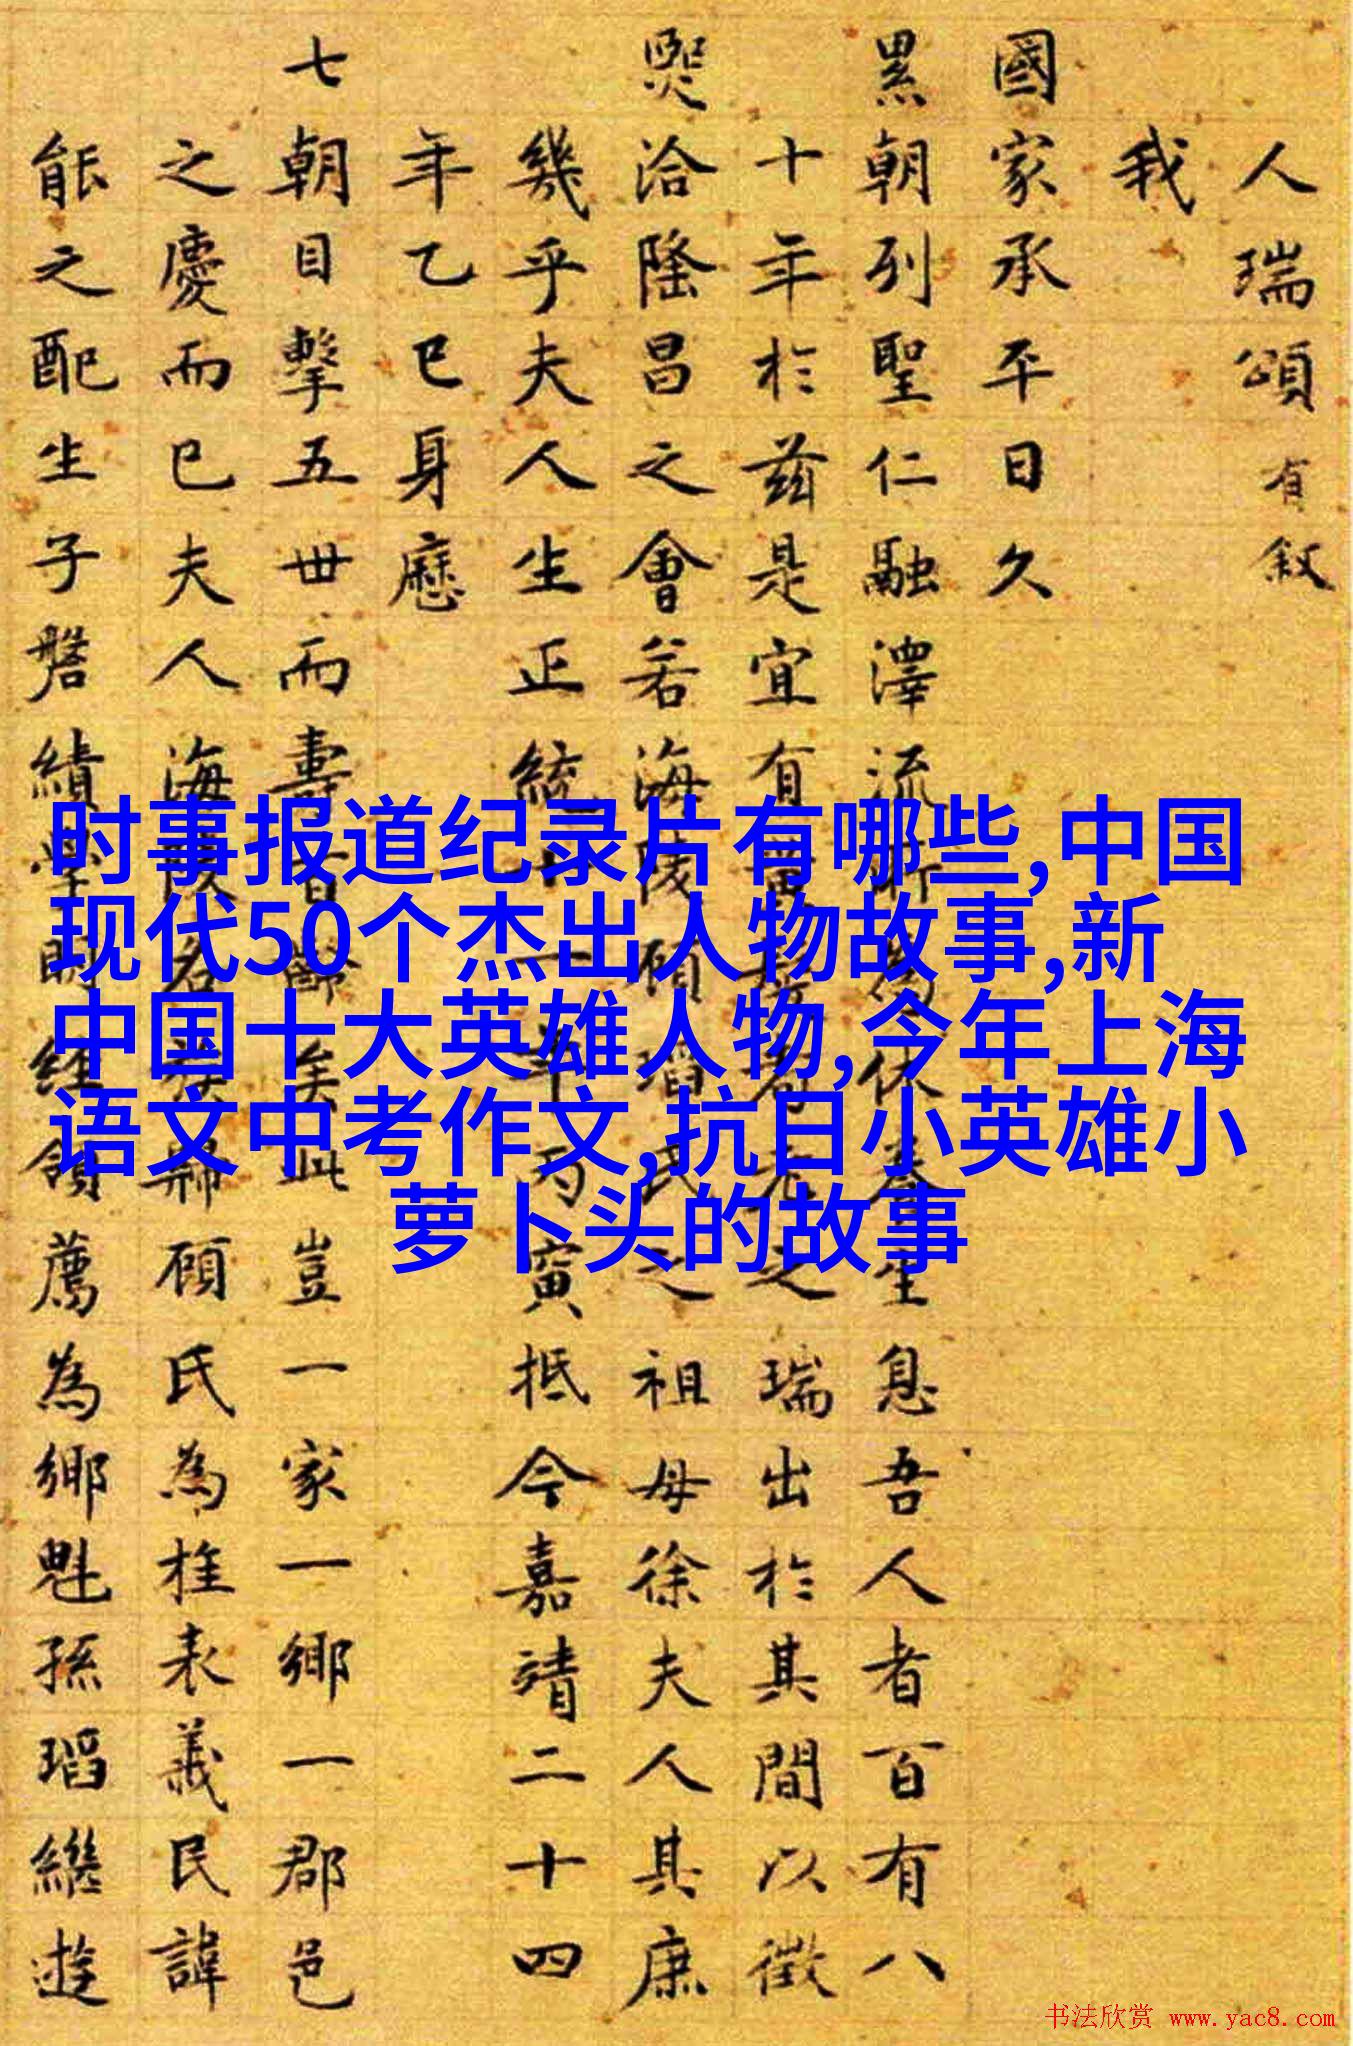 人瑞頌有敘
我
國家承平日久
累朝列聖仁融澤流為休養生息吾人者百有八
十年於茲是宜有之瑞出於其間以徵
熙洽隆昌之會若海陵顧瑫氏之祖母徐夫人其庶
幾乎夫人生正統十一年丙寅抵今嘉靖二十四
年乙巳身歷
七朝目擊五世而壽百齡矣此豈一家一鄉一郡邑
之慶而已夫人海陵名族歸顧氏為桂表義民諱
能之配生子磐績學明經領薦為鄉魁孫瑫繼遊
时事报道纪录片有哪些,中国
现代50个杰出人物故事,新
中国十大英雄人物,今年上海
语文中考作文,抗日小英雄小
萝卜头的故事
书法欣赏 www.yac8.com